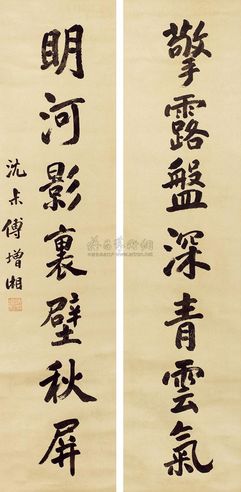 擎露盤深青雲氣
明河影裏壁秋屏
沅尗傅增湘